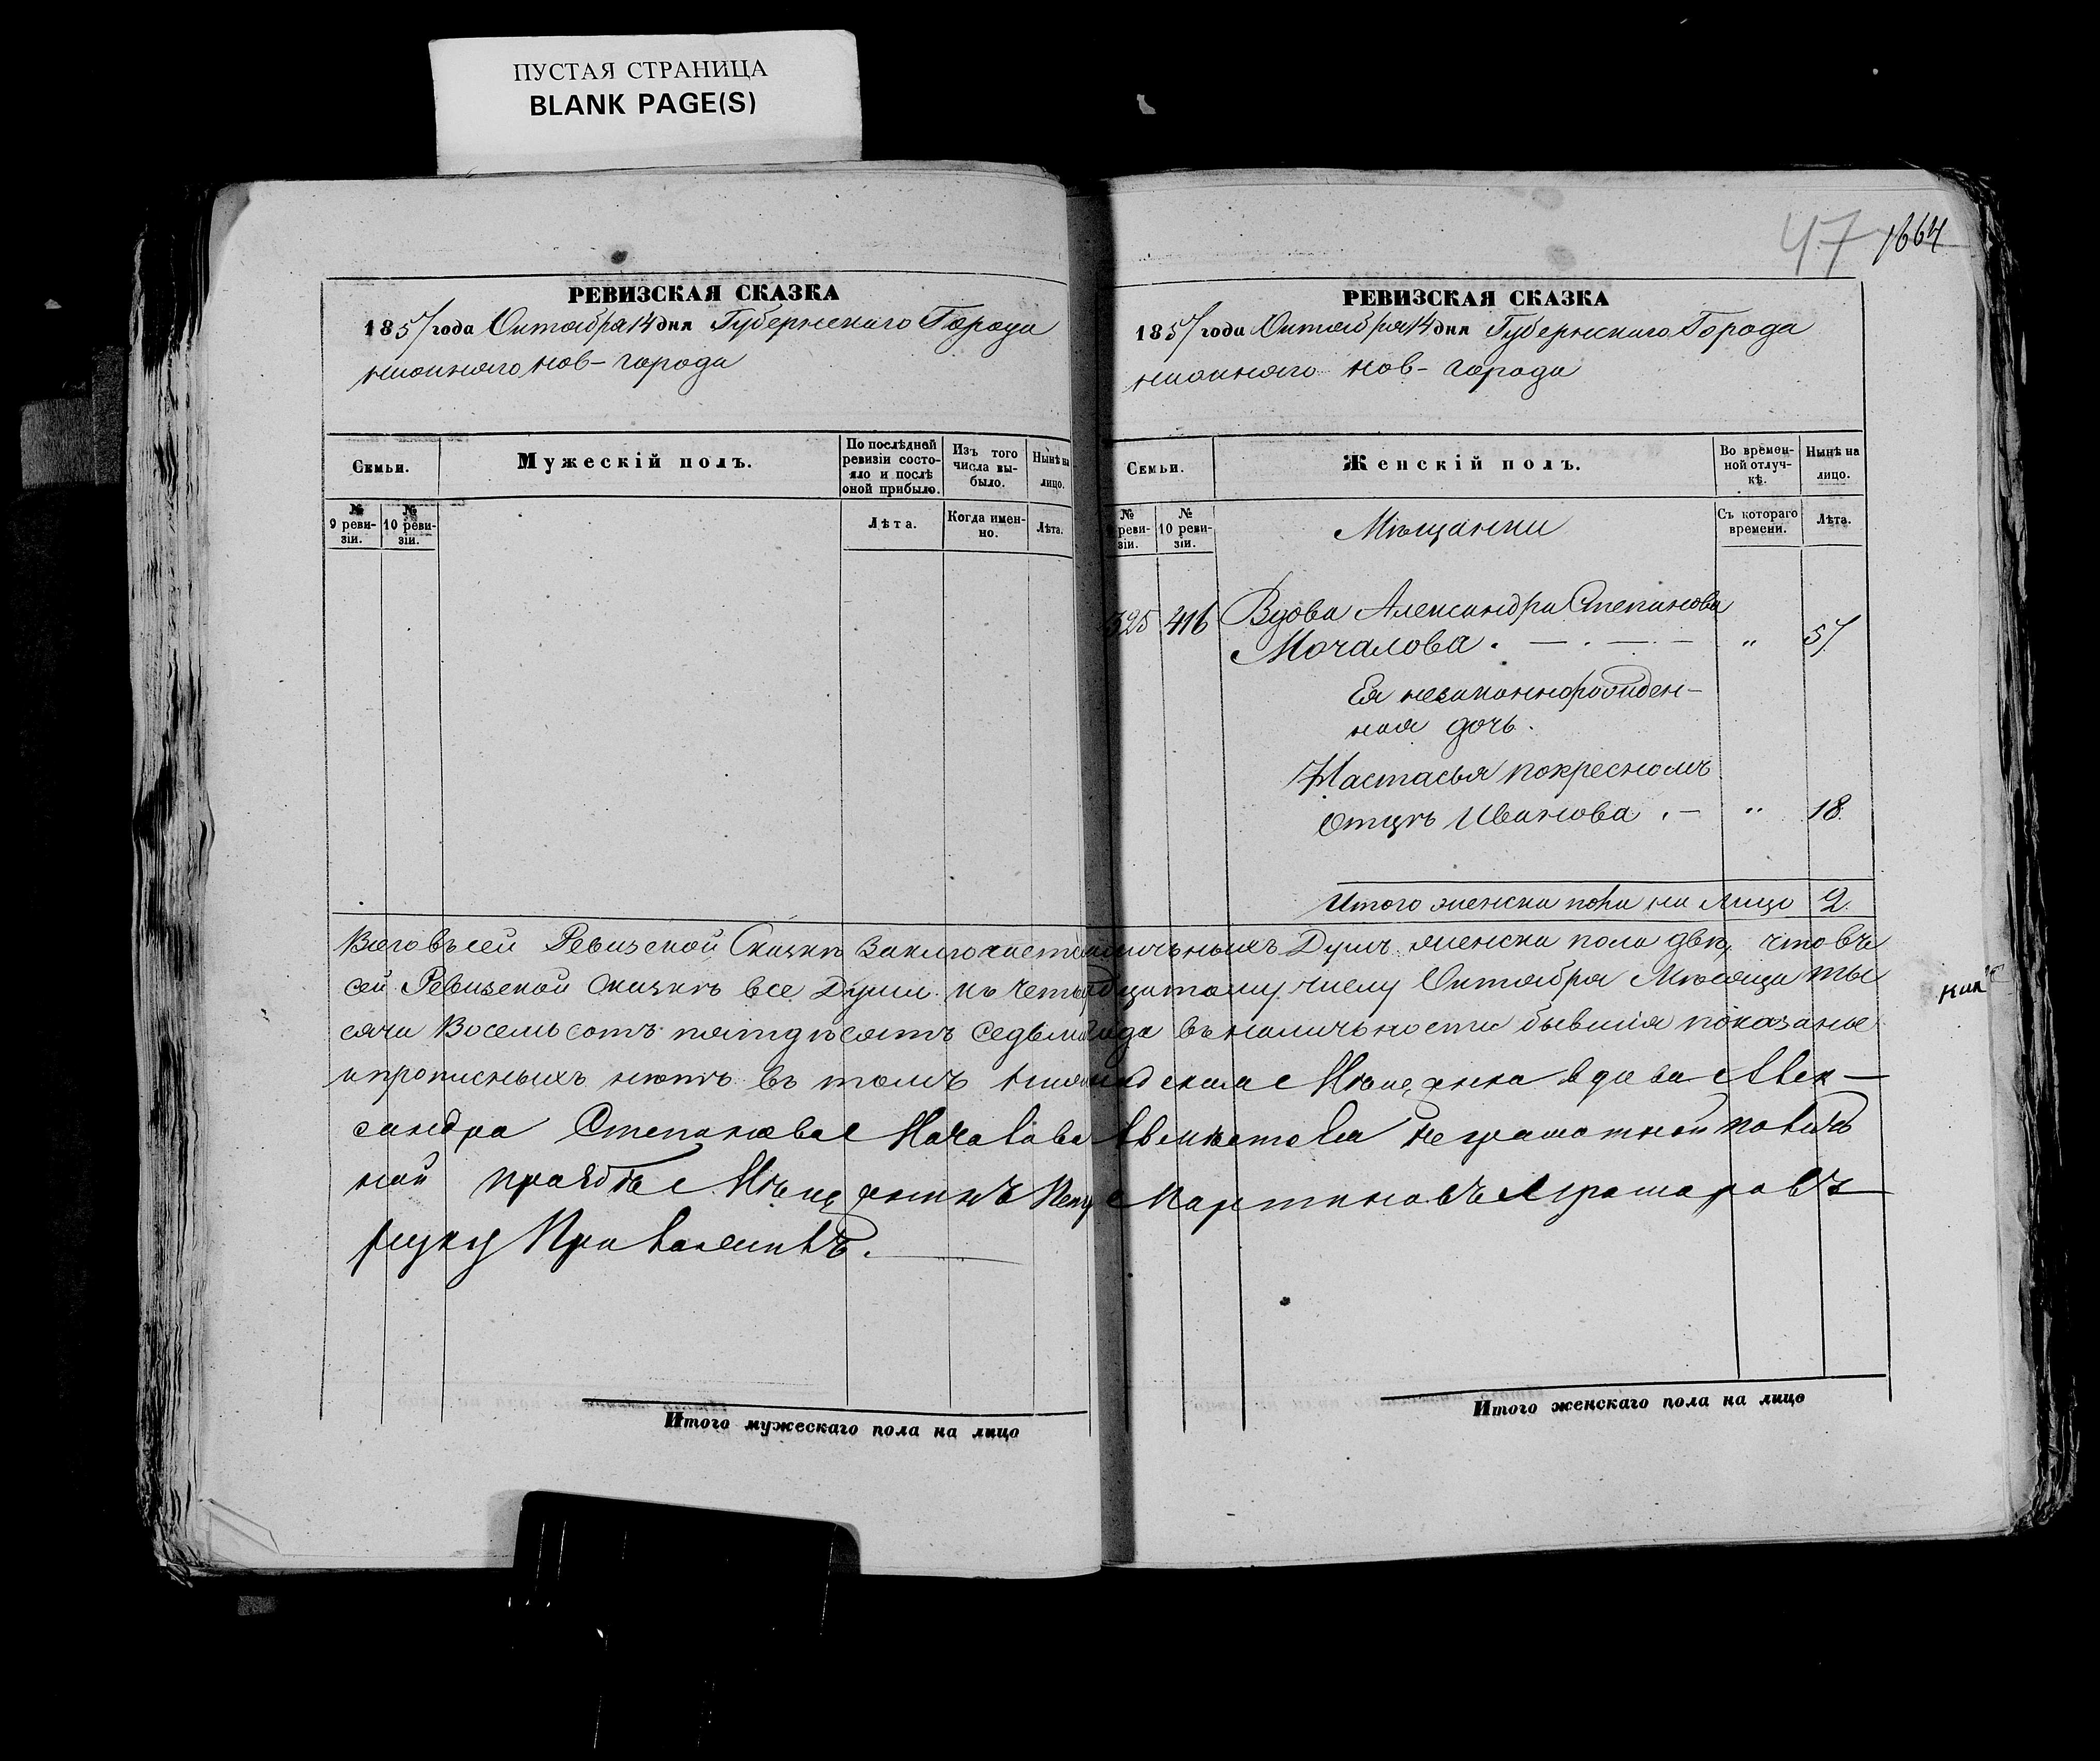 ПУСТАЯ СТРАНИЦА
BLANK PAGE(S)
РЕВИЗСКАЯ СКАЗКА
1857 года Октября 14 дня Губернскаго Города
нижняго нов-города
Семьи.
Мужескій полъ.
По послѣдней ревизіи состояло и послѣ оной прибыло.
Изъ того числа выбыло.
Нынѣ на лицо.
№ 9 ревизіи.
№ 10 ревизіи.
Лѣта.
Когда именно.
Лѣта.
Итого мужескаго пола на лицо
47 1664
РЕВИЗСКАЯ СКАЗКА
1857 года Октября 14 дня Губернскаго Города
нижняго нов-города
Семьи.
Женскій полъ.
Во временной отлучкѣ.
Нынѣ на лицо.
№ ревизіи.
№ 10 ревизіи.
Мѣщанки
Съ котораго времени.
Лѣта.
325 416 Вдова Александра Степанова
Мочалова . — . — — „ 57
Ея незаконнорожден-
ная дочь.
Настасья покресномъ
Отцѣ Иванова . — „ 18
Итого женска пола на Лицо 2.
Всего въ сей Ревизской Сказкѣ заключается наличьныхъ Душъ женска пола двѣ, что въ
сей Ревизской Сказкѣ все Души къ четырнадцатому числу Октября Мѣсяца ты
сяча Восемь сотъ пятдѣсятъ седьмаго года въ наличьности бывшія показаны
и прописныхъ нѣтъ въ томъ Мѣщанка вдова Алек—
сандра Степанова Мочалова неграмотной по
ной прозбѣ Мѣщанинъ Мартиновъ
руку Приложилъ.
Итого женскаго пола на лицо